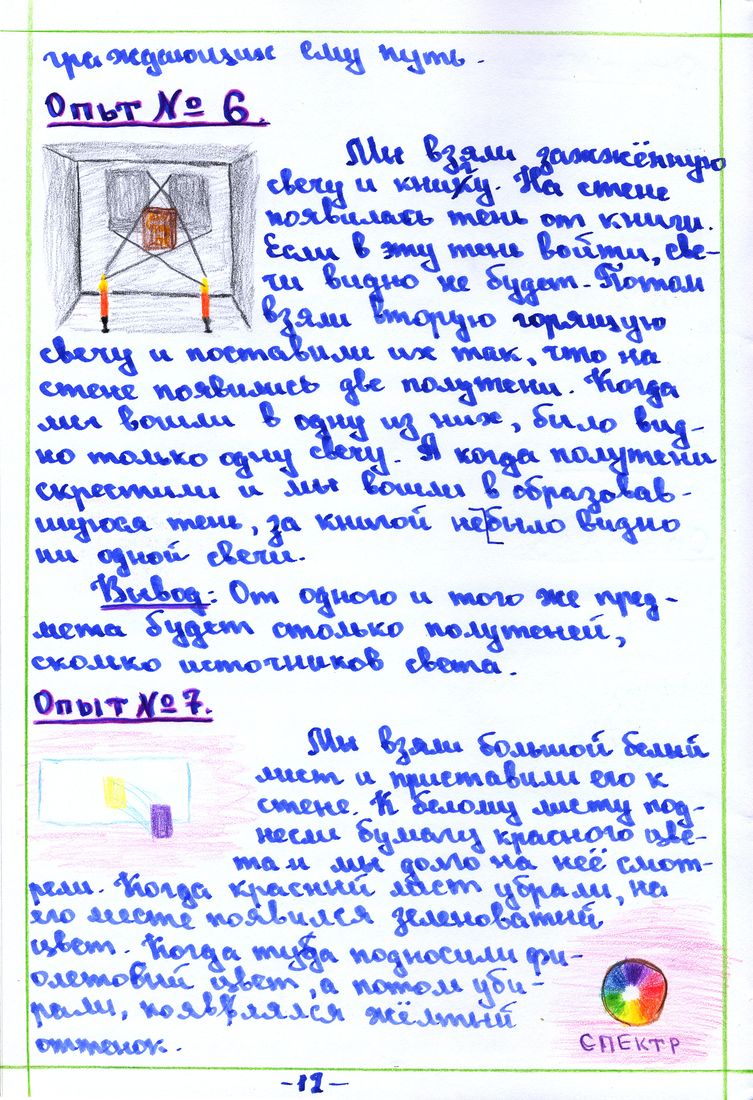 граждающих ему путь.
Опыт № 6.
Мы взяли зажжённую
свечу и книгу. На стене
появилась тень от книги.
Если в эту тень войти, све-
чи видно не будет. Потом
взяли вторую горящую
свечу и поставили их так, что на
стене появились две полутени. Когда
мы вошли в одну из них, было вид-
но только одну свечу. А когда полутени
скрестили и мы вошли в образовав-
шуюся тень, за книгой не было видно
ни одной свечи.
Вывод: От одного и того же пред-
мета будет столько полутеней,
сколко источников света.
Опыт № 7.
Мы взяли большой белый
лист и приставили его к
стене. К белому листу под-
несли бумагу красного цве-
та и мы долго на неё смот-
рели. Когда красный лист убрали, на
его месте появился зеленоватый
цвет. Когда туда подносили фи-
олетовый цвет, а потом уби-
рали, появлялся жёлтый
оттенок.
СПЕКТР